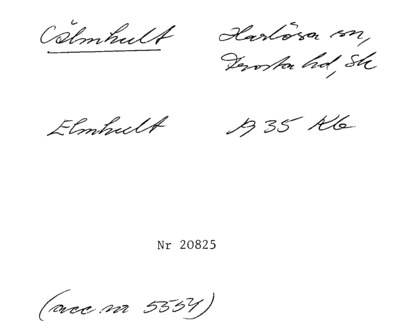 Cölmhult Harlösa sn,
Frosta hd, Sk
Elmhult 1935 Kb
Nr 20825
(acc nr 5554)